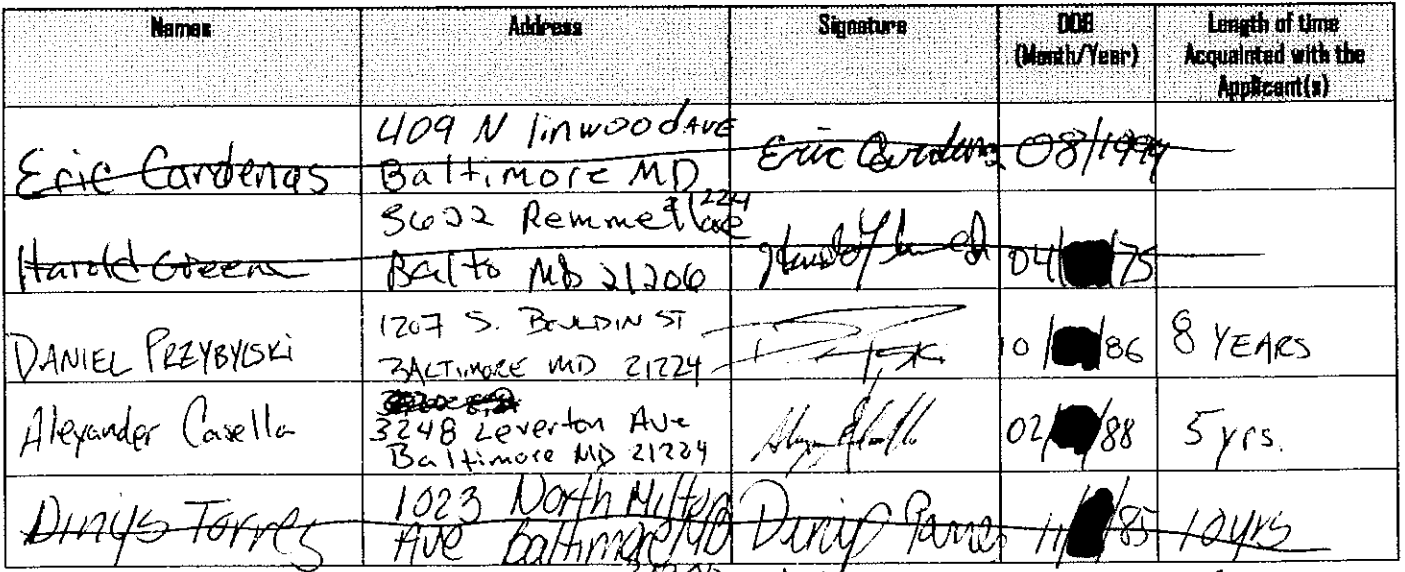 Names Address Signature DOB (Month/Year) Length of time Acquainted with the Applicant(s)
Eric Cardenas 409 N linwood AVE Baltimore MD 21224 Eric Cardenas 08/1994
Harold Green Balto MD 21206 04/ /75
DANIEL PRZYBYLSKI 1207 S. BOULDIN ST BALTIMORE MD 21224 10/ /86 8 YEARS
Alexander Casella 3248 Leverton Ave Baltimore MD 21224 02/ /88 5 yrs.
Dinys Torres 1023 North Milton Ave Baltimore MD 11/ /85 10 yrs